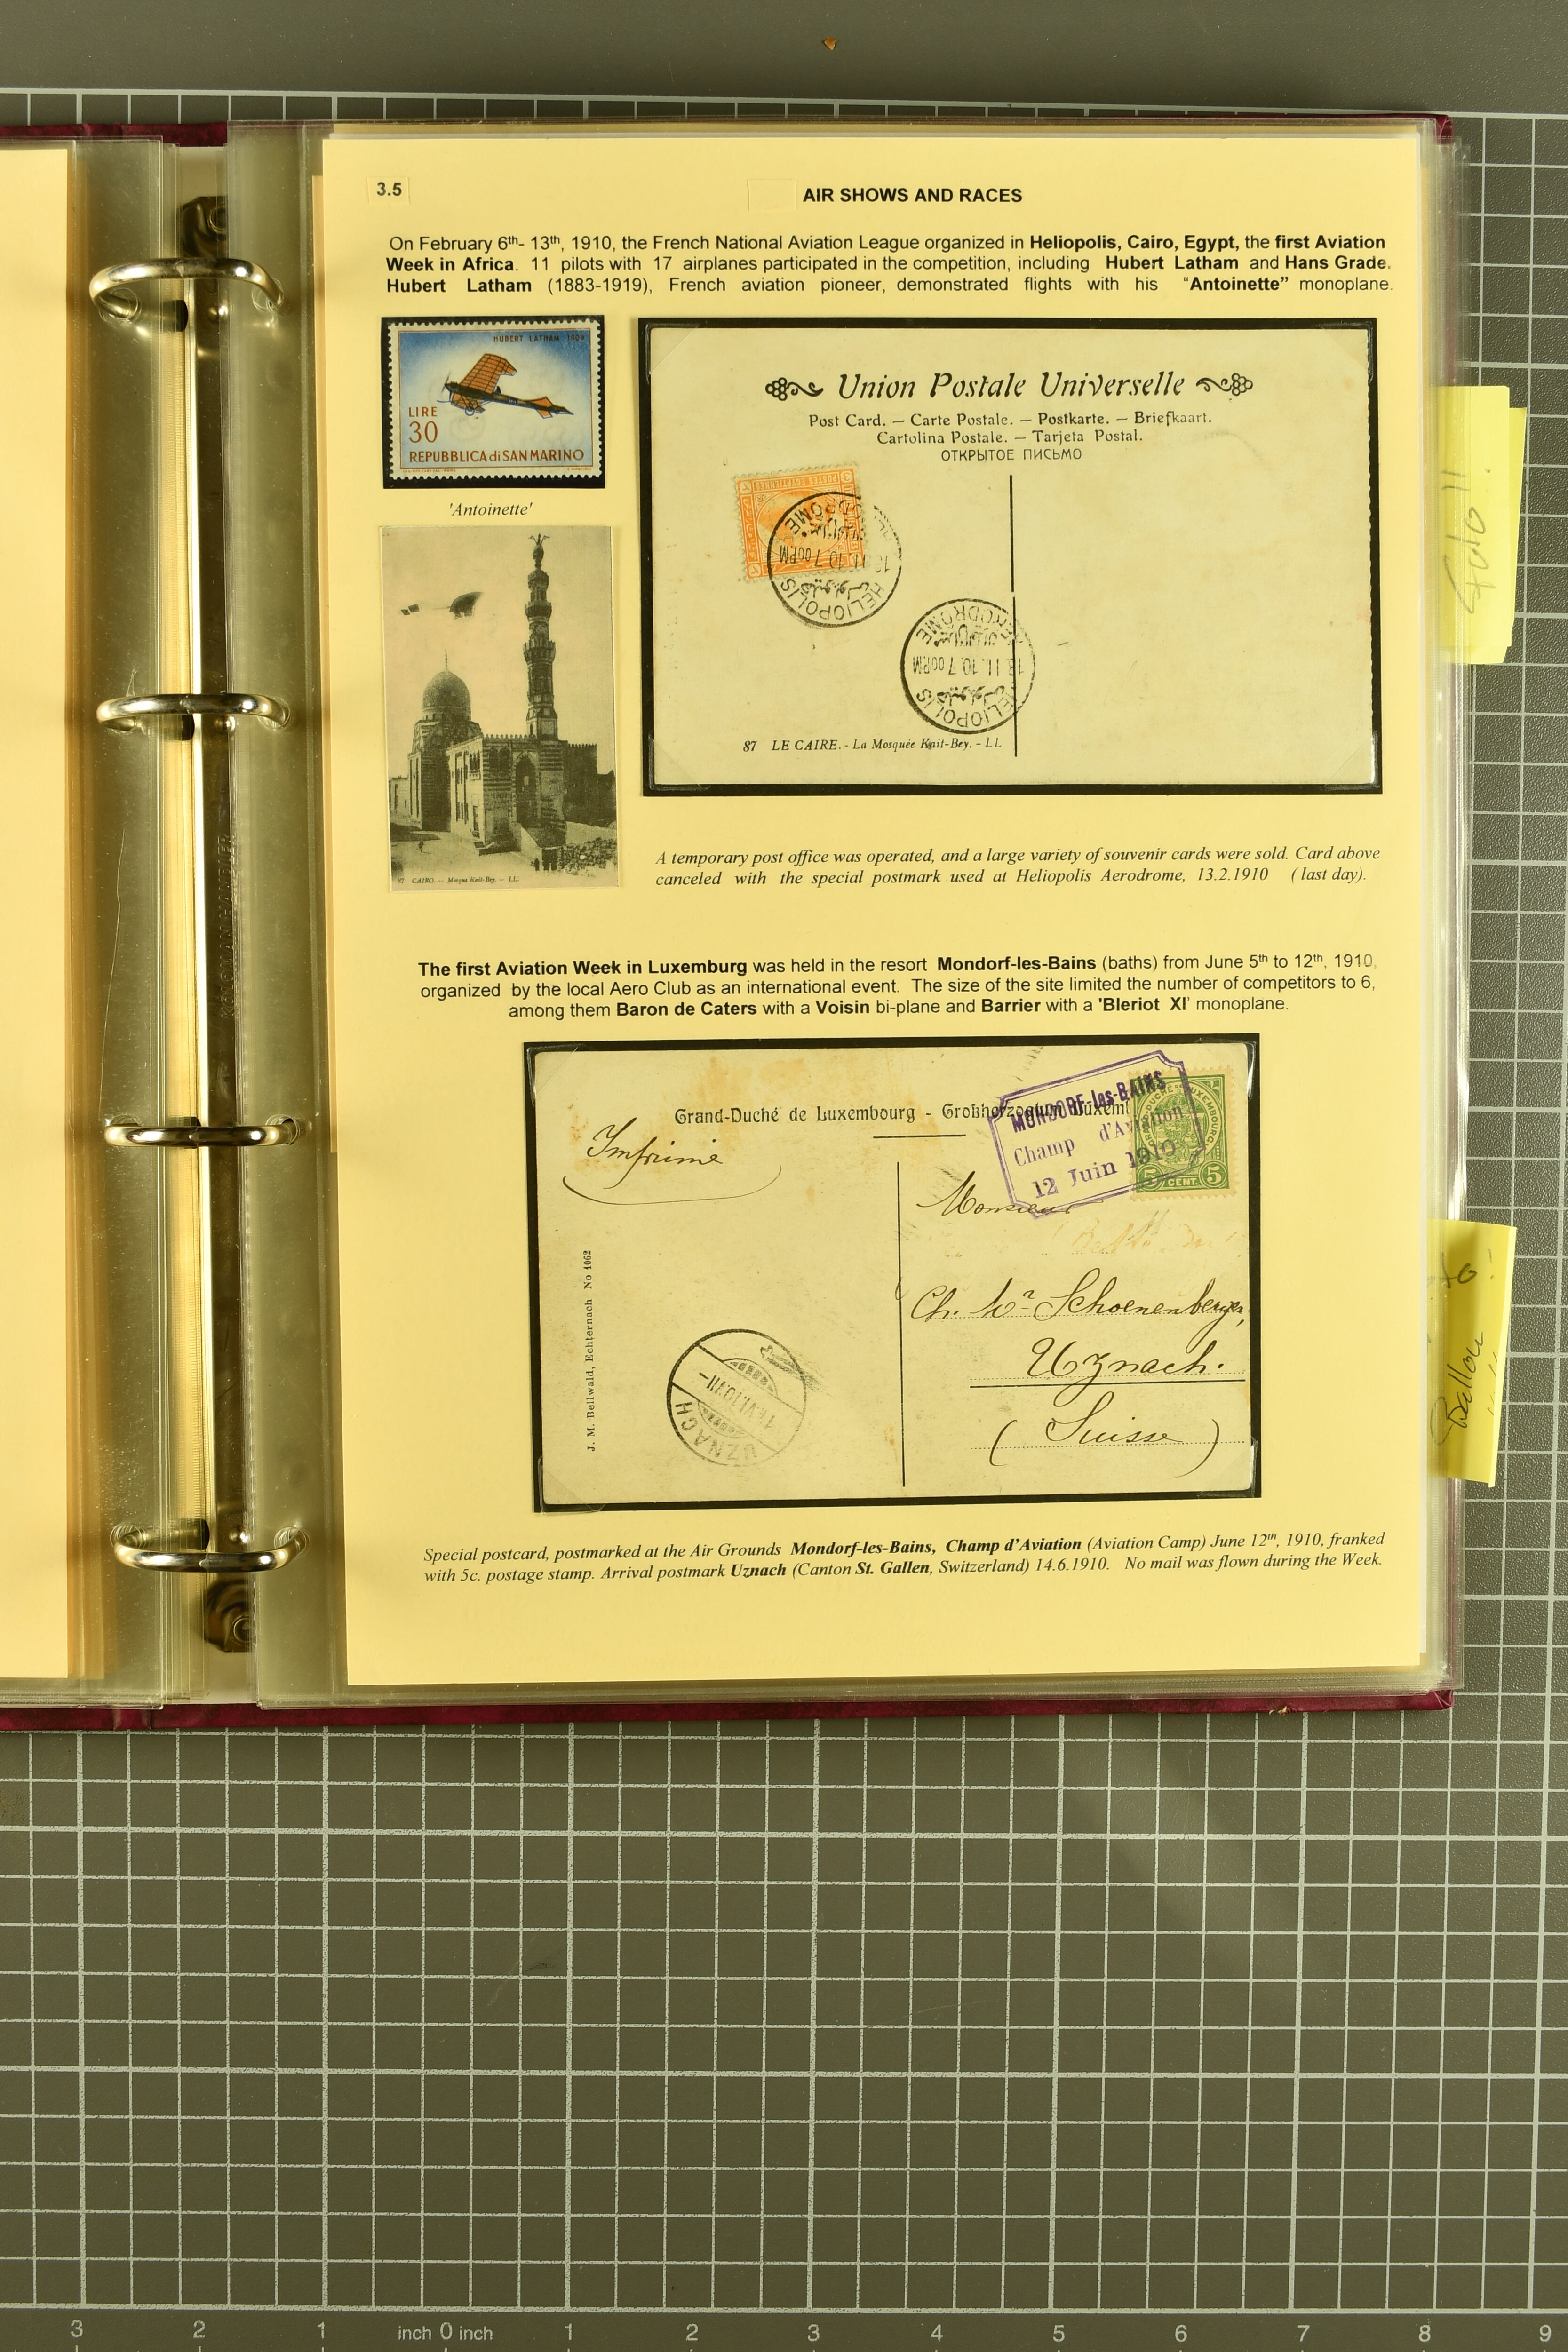 3.5
AIR SHOWS AND RACES
On February 6th- 13th, 1910, the French National Aviation League organized in Heliopolis, Cairo, Egypt, the first Aviation
Week in Africa. 11 pilots with 17 airplanes participated in the competition, including Hubert Latham and Hans Grade.
Hubert Latham (1883-1919), French aviation pioneer, demonstrated flights with his "Antoinette" monoplane.
HUBERT LATHAM 1909
LIRE
30
REPUBBLICA di SAN MARINO
'Antoinette'
87 CAIRO. — Mosque Kait-Bey. — LL.
Union Postale Universelle
Post Card. — Carte Postale. — Postkarte. — Briefkaart.
Cartolina Postale. — Tarjeta Postal.
ОТКРЫТОЕ ПИСЬМО
HELIOPOLIS
7 00PM
HELIOPOLIS
13.II.10.7 00PM
AERODROME
87 LE CAIRE. - La Mosquée Kait-Bey. - LL.
A temporary post office was operated, and a large variety of souvenir cards were sold. Card above
canceled with the special postmark used at Heliopolis Aerodrome, 13.2.1910 (last day).
The first Aviation Week in Luxemburg was held in the resort Mondorf-les-Bains (baths) from June 5th to 12th, 1910,
organized by the local Aero Club as an international event. The size of the site limited the number of competitors to 6,
among them Baron de Caters with a Voisin bi-plane and Barrier with a 'Bleriot XI' monoplane.
Grand-Duché de Luxembourg - Großherzogtum Luxem
MONDORF-les-BAINS
Champ d'Aviation
12 Juin 1910
5 CENT. 5
Imprimé
Monsieur
Ch. Wr Schoenenberger,
Uznach.
(Suisse)
J. M. Bellwald, Echternach No 1062
UZNACH
Special postcard, postmarked at the Air Grounds Mondorf-les-Bains, Champ d'Aviation (Aviation Camp) June 12th, 1910, franked
with 5c. postage stamp. Arrival postmark Uznach (Canton St. Gallen, Switzerland) 14.6.1910. No mail was flown during the Week.
Ballon
3 2 1 inch 0 inch 1 2 3 4 5 6 7 8 9